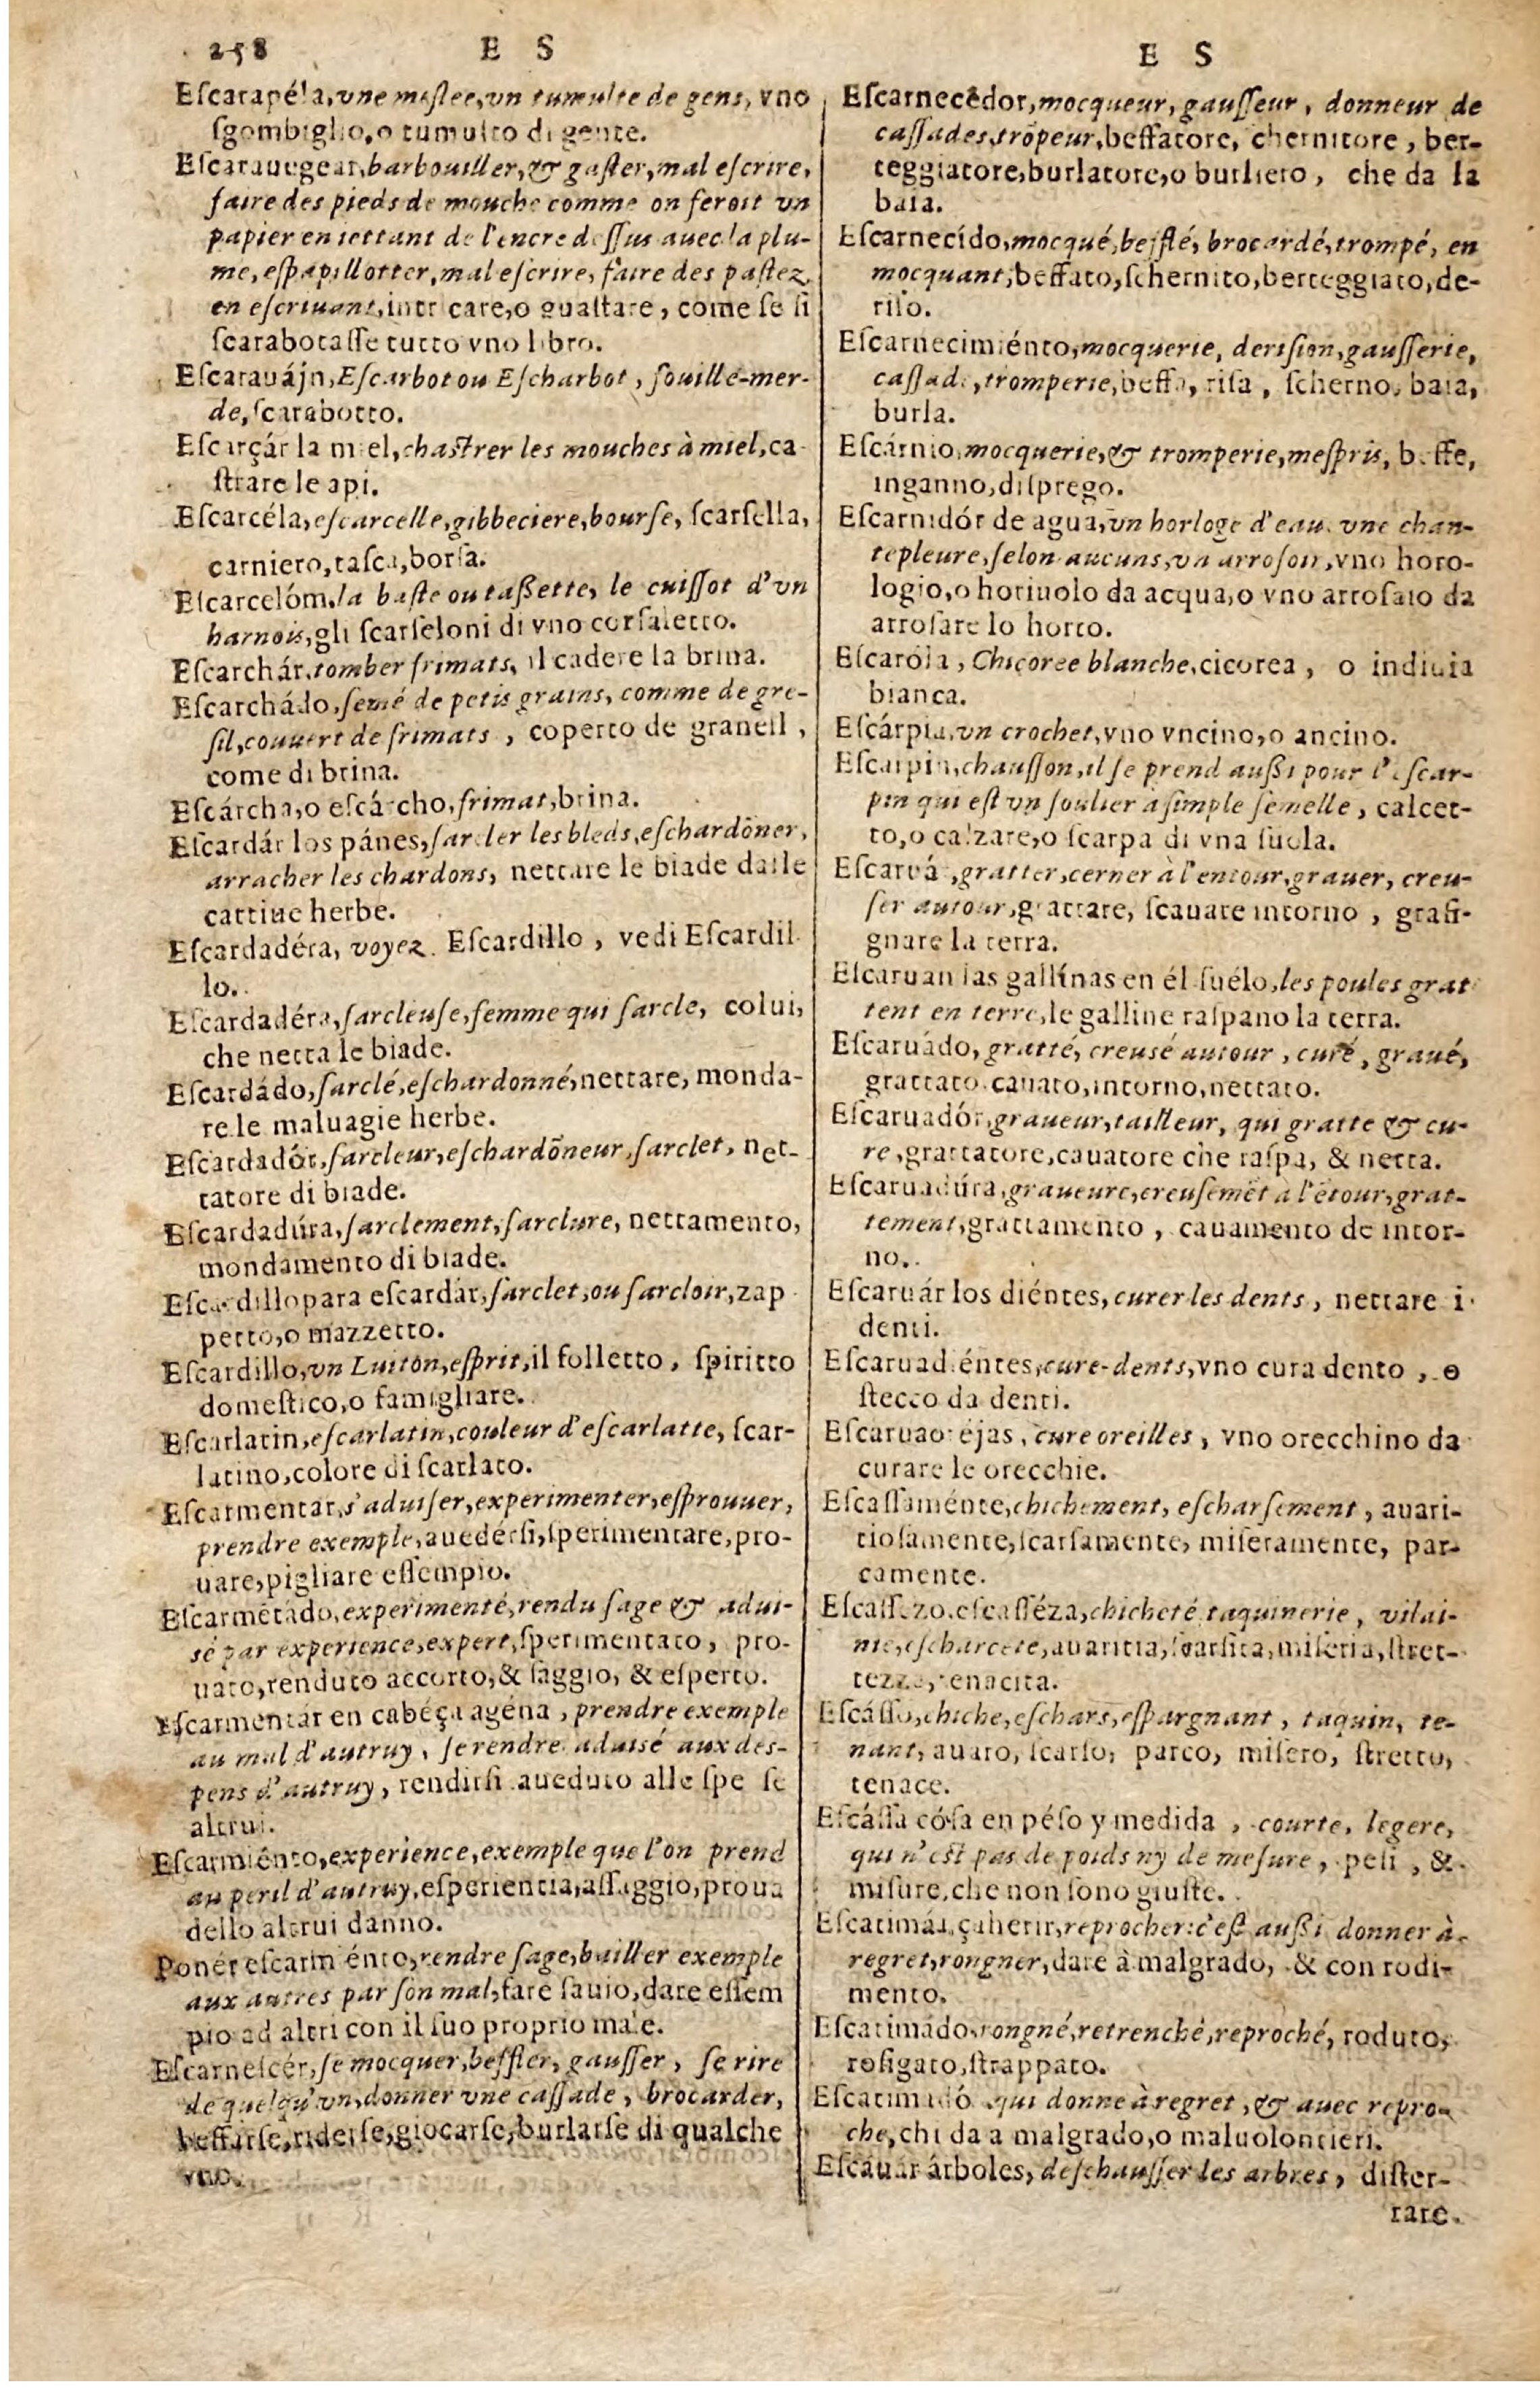 258 E S
Eſcarapéla, vne meſlee, vn tumulte de gens, vno
ſgombiglio, o tumulto di gente.
Eſcarauegear, barbouiller, & gaſter, mal eſcrire,
faire des pieds de mouche comme on feroit vn
papier en iettant de l'encre deſſus auec la plu-
me, eſpapillotter, mal eſcrire, faire des paſtez
en eſcriuant, intricare, o guaſtare, come ſe ſi
ſcarabotaſſe tutto vno libro.
Eſcarauájn, Eſcarbot ou Eſcharbot, ſouille-mer-
de, ſcarabotto.
Eſcarçár la miel, chaſtrer les mouches à miel, ca
ſtrare le api.
Eſcarcéla, eſcarcelle, gibbeciere, bourſe, ſcarſella,
carniero, taſca, borſa.
Eſcarcelóm, la baſte ou taſſette, le cuiſſot d'vn
harnois, gli ſcarſeloni di vno corſaletto.
Eſcarchár, tomber frimats, il cadere la brina.
Eſcarchádo, ſemé de petis grains, comme de gre-
ſil, couuert de frimats, coperto de granell,
come di brina.
Eſcárcha, o eſcárcho, frimat, brina.
Eſcardár los pánes, ſarcler les bleds, eſchardōner,
arracher les chardons, nettare le biade dalle
cattiue herbe.
Eſcardadéra, voyez Eſcardillo, vedi Eſcardil
lo.
Eſcardadéra, ſarcleuſe, femme qui ſarcle, colui,
che netta le biade.
Eſcardádo, ſarclé, eſchardonné, nettare, monda-
re le maluagie herbe.
Eſcardadór, ſarcleur, eſchardōneur, ſarclet, net-
tatore di biade.
Eſcardadúra, ſarclement, ſarclure, nettamento,
mondamento di biade.
Eſcardillo para eſcardár, ſarclet, ou ſarcloir, zap
petto, o mazzetto.
Eſcardillo, vn Luiton, eſprit, il folletto, ſpiritto
domeſtico, o famigliare.
Eſcarlatin, eſcarlatin, couleur d'eſcarlatte, ſcar-
latino, colore di ſcarlato.
Eſcarmentar, s'aduiſer, experimenter, eſprouuer,
prendre exemple, auedérſi, ſperimentare, pro-
uare, pigliare eſſempio.
Eſcarmētado, experimenté, rendu ſage & adui-
sé par experience, expert, ſperimentato, pro-
uato, renduto accorto, & ſaggio, & eſperto.
Eſcarmentár en cabéça agéna, prendre exemple
au mal d'autruy, ſe rendre aduisé aux deſ-
pens d'autruy, rendirſi aueduto alle ſpe ſe
altrui.
Eſcarmiénto, experience, exemple que l'on prend
au peril d'autruy, eſperientia, aſſaggio, proua
dello altrui danno.
Ponér eſcarmiénto, rendre ſage, bailler exemple
aux autres par ſon mal, fare ſauio, dare eſſem
pio ad altri con il ſuo proprio male.
Eſcarneſcér, ſe mocquer, beffler, gauſſer, ſe rire
de quelqu'vn, donner vne caſſade, brocarder,
beffarſe, riderſe, giocarſe, burlarſe di qualche
vno.
E S
Eſcarnecedor, mocqueur, gauſſeur, donneur de
caſſades, trōpeur, beffatore, chernitore, ber-
teggiatore, burlatore, o burliero, che da la
baia.
Eſcarnecído, mocqué, beſflé, brocardé, trompé, en
mocquant, beffato, ſchernito, berteggiato, de-
riſo.
Eſcarnecimiénto, mocquerie, deriſion, gauſſerie,
caſſade, tromperie, beffa, riſa, ſcherno, baia,
burla.
Eſcárnio, mocquerie, & tromperie, meſpris, beffe,
inganno, diſprego.
Eſcarnidór de agua, vn horloge d'eau, vne chan-
tepleure, ſelon aucuns, vn arroſoir, vno horo-
logio, o horiuolo da acqua, o vno arroſaio da
arroſare lo horto.
Eſcaróla, Chicoree blanche, cicorea, o indiuia
bianca.
Eſcárpia, vn crochet, vno vncino, o ancino.
Eſcarpin, chauſſon, il ſe prend auſſi pour l'eſcar-
pin qui eſt vn ſoulier à ſimple ſemelle, calcet-
to, o calzare, o ſcarpa di vna ſuola.
Eſcarvá, gratter, cerner à l'entour, grauer, creu-
ſer autour, grattare, ſcauare intorno, grafi-
gnare la terra.
Eſcaruan las gallínas en él ſuélo, les poules grat
tent en terre, le galline raſpano la terra.
Eſcaruádo, gratté, creusé autour, curé, graué,
grattato, cauato, intorno, nettato.
Eſcaruadór, graueur, tailleur, qui gratte & cu-
re, grattatore, cauatore che raſpa, & netta.
Eſcaruadúra, graueure, creuſemēt à l'ētour, grat-
tement, grattamento, cauamento de intor-
no.
Eſcaruár los diéntes, curer les dents, nettare i
denti.
Eſcaruadiéntes, cure-dents, vno cura dento, o
ſtecco da denti.
Eſcaruaoréjas, cure oreilles, vno orecchino da
curare le orecchie.
Eſcaſſaménte, chichement, eſcharſement, auari-
tioſamente, ſcarſamente, miſeramente, par-
camente.
Eſcaſſezo, eſcaſſéza, chicheté, taquinerie, vilai-
nie, eſcharceté, auaritia, ſcarſita, miſeria, ſtret-
tezza, tenacita.
Eſcáſſo, chiche, eſchars, eſpargnant, taquin, te-
nant, auaro, ſcarſo, parco, miſero, ſtretto,
tenace.
Eſcáſſa cóſa en péſo y medida, courte, legere,
qui n'eſt pas de poids ny de meſure, peſi, &
miſure, che non ſono giuſte.
Eſcatimár, çaherir, reprocher: c'eſt auſſi donner à
regret, rongner, dare à malgrado, & con rodi-
mento.
Eſcatimádo, rongné, retrenché, reproché, roduto,
roſigato, ſtrappato.
Eſcatimadó, qui donne à regret, & auec repro-
che, chi da a malgrado, o maluolontieri.
Eſcauár árboles, deſchauſſer les arbres, diſter-
rare.